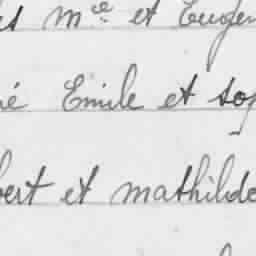 et Eugen
né Emile et sop
bert et mathilde